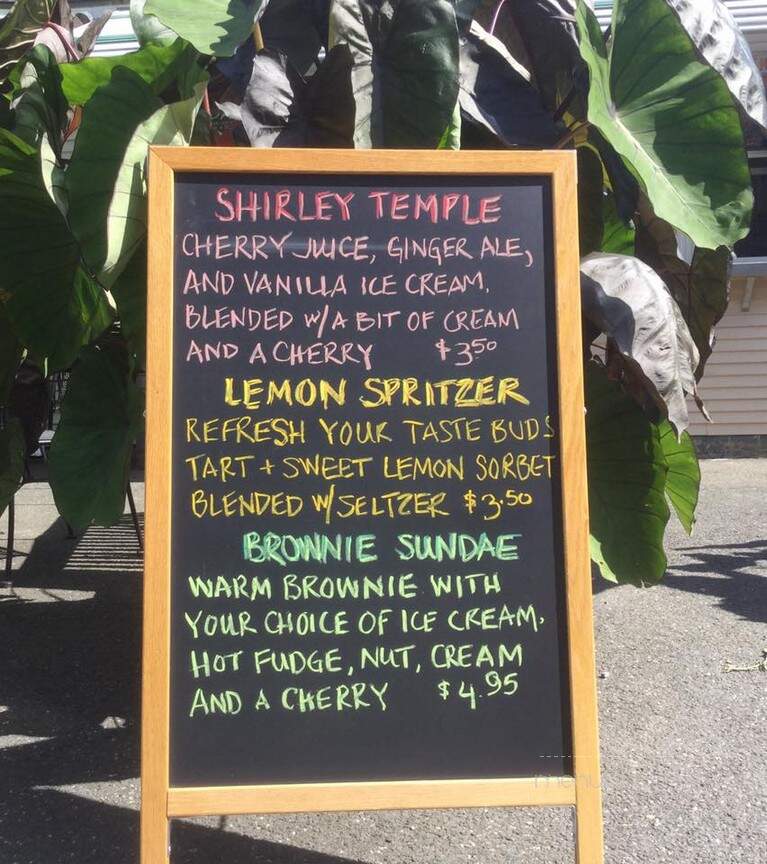 SHIRLEY TEMPLE
CHERRY JUICE, GINGER ALE,
AND VANILLA ICE CREAM.
BLENDED W/A BIT OF CREAM
AND A CHERRY $3.50
LEMON SPRITZER
REFRESH YOUR TASTE BUDS
TART + SWEET LEMON SORBET
BLENDED W/SELTZER $3.50
BROWNIE SUNDAE
WARM BROWNIE WITH
YOUR CHOICE OF ICE CREAM.
HOT FUDGE, NUT, CREAM
AND A CHERRY $4.95
menu